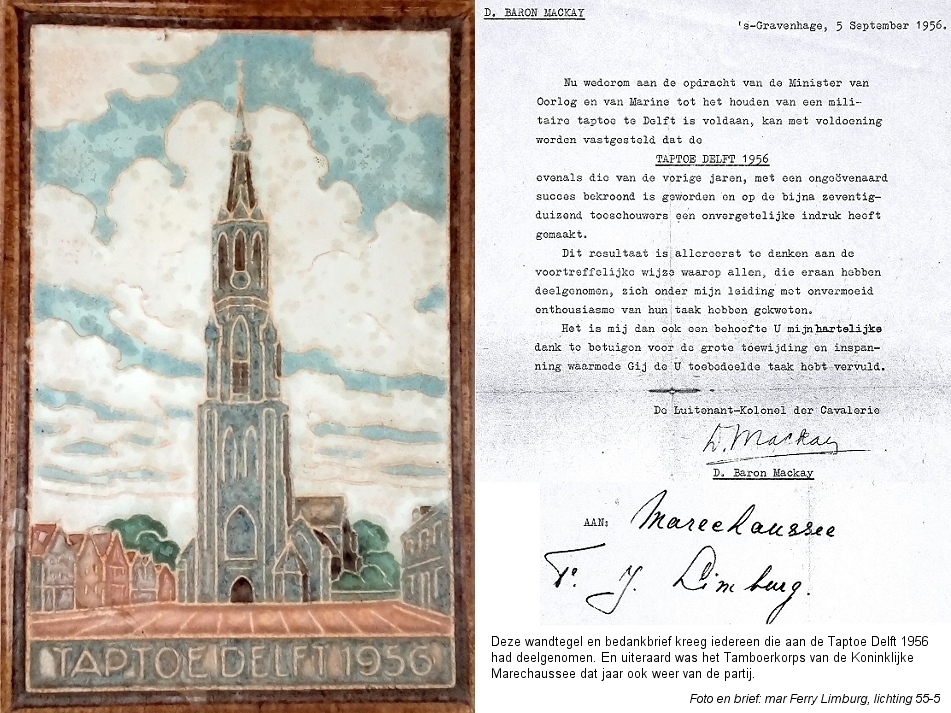 TAPTOE DELFT 1956
D. BARON MACKAY
's-Gravenhage, 5 September 1956.
Nu wederom aan de opdracht van de Minister van
Oorlog en van Marine tot het houden van een mili-
taire taptoe te Delft is voldaan, kan met voldoening
worden vastgesteld dat de
TAPTOE DELFT 1956
evenals die van de vorige jaren, met een ongeëvenaard
succes bekroond is geworden en op de bijna zeventig-
duizend toeschouwers een onvergetelijke indruk heeft
gemaakt.
Dit resultaat is allereerst te danken aan de
voortreffelijke wijze waarop allen, die eraan hebben
deelgenomen, zich onder mijn leiding met onvermoeid
enthousiasme van hun taak hebben gekweten.
Het is mij dan ook een behoefte U mijn hartelijke
dank te betuigen voor de grote toewijding en inspan-
ning waarmede Gij de U toebedeelde taak hebt vervuld.
De Luitenant-Kolonel der Cavalerie
D. Mackay
D. Baron Mackay
AAN: Marechaussee
F. J. Limburg.
Deze wandtegel en bedankbrief kreeg iedereen die aan de Taptoe Delft 1956
had deelgenomen. En uiteraard was het Tamboerkorps van de Koninklijke
Marechaussee dat jaar ook weer van de partij.
Foto en brief: mar Ferry Limburg, lichting 55-5